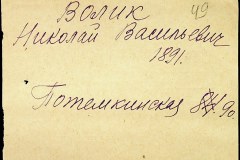 Волик 49
Николай Васильевич
1891.
Потемкинская 90